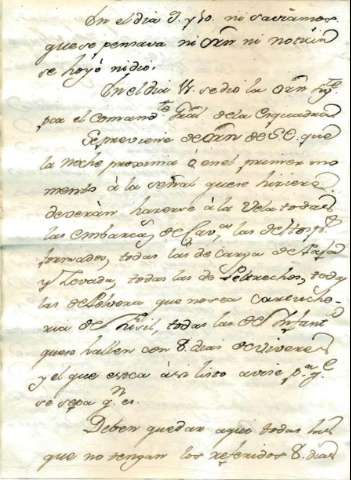 En el dia 9. y 10. ni saviamos
que se pensava ni orn ni noticia
se hoyó ni dio.
En el dia 11. se dio la orn
por el Comandte Gral de la Esquadra
Se previene de orn de S.E. que
la noche proxima o en el primer mo
mento á la señal que se hiciere
deverán hacerse á la Vela todas
las embarcs de Cavas las de
formadas, todas las de carga de Paja
y Cevada, todas las de Pertrechos, todas
las de Polvora que no sea cartuche
ria de Fusil, todas las de Infanta
que se hallen con 8. dias de viveres
y el que este asi listo avise pa qe
se sepa qn es.
Deben quedar aqui todas las
que no tengan los referidos 8. dias